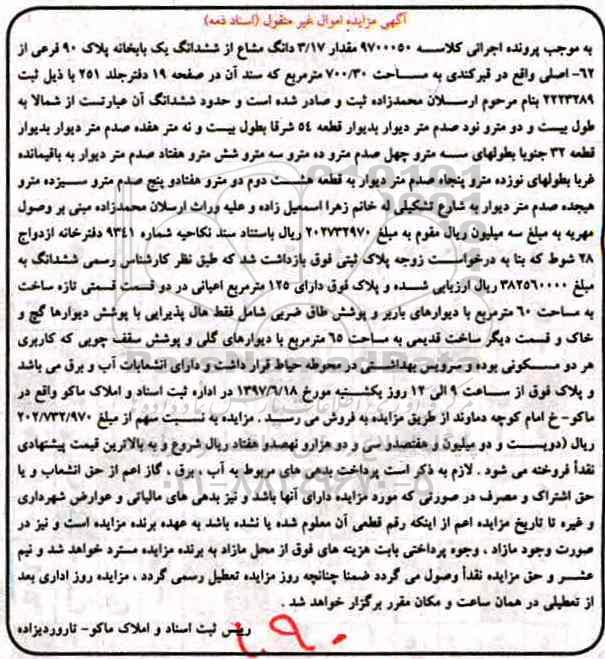 آگهی مزایده اموال غیر منقول (اسناد ذمه)
به موجب پرونده اجرائی کلاسه ۹۷۰۰۰۵۰ مقدار ۳/۱۷ دانگ مشاع از ششدانگ یک بابخانه پلاک ۹۰ فرعی از
۶۲- اصلی واقع در قبرکندی به مساحت ۷۰۰/۳۰ مترمربع که سند آن در صفحه ۱۹ دفترجلد ۲۵۱ با ذیل ثبت
۲۲۲۳۲۸۹ بنام مرحوم ارسلان محمدزاده ثبت و صادر شده است و حدود ششدانگ آن عبارتست از شمالا به
طول بیست و دو مترو نود صدم متر دیوار بدیوار قطعه ۵۴ شرقا بطول بیست و نه متر هفده صدم متر دیوار بدیوار
قطعه ۳۲ جنوبا بطولهای سه مترو چهل صدم مترو ده مترو سه مترو شش مترو هفتاد صدم متر دیوار به باقیمانده
غربا بطولهای نوزده مترو پنجاه صدم متر دیوار به قطعه هشت دوم دو مترو هفتادو پنج صدم مترو سیزده مترو
هیجده صدم متر دیوار به شارع تشکیلی له خانم زهرا اسمعیل زاده و علیه وراث ارسلان محمدزاده مبنی بر وصول
مهریه به مبلغ سه میلیون ریال مقوم به مبلغ ۲۰۲۷۳۲۹۷۰ ریال باستناد سند نکاحیه شماره ۹۳۴۱ دفترخانه ازدواج
۲۸ شوط که بنا به درخواست زوجه پلاک ثبتی فوق بازداشت شد که طبق نظر کارشناس رسمی ششدانگ به
مبلغ ۳۸۲۵۶۰۰۰۰ ریال ارزیابی شده و پلاک فوق دارای ۱۲۵ مترمربع اعیانی در دو قسمت قسمتی تازه ساخت
به مساحت ۶۰ مترمربع با دیوارهای باربر و پوشش طاق ضربی شامل فقط هال پذیرایی با پوشش دیوارها گچ و
خاک و قسمت دیگر ساخت قدیمی به مساحت ۶۵ مترمربع با دیوارهای گلی و پوشش سقف چوبی که کاربری
هر دو مسکونی بوده و سرویس بهداشتی در محوطه حیاط قرار داشت و دارای انشعابات آب و برق می باشد
و پلاک فوق از ساعت ۹ الی ۱۲ روز یکشنبه مورخ ۱۳۹۷/۶/۱۸ در اداره ثبت اسناد و املاک ماکو واقع در
ماکو- خ امام کوچه دماوند از طریق مزایده به فروش می رسد . مزایده به نسبت سهم از مبلغ ۲۰۲/۷۳۲/۹۷۰
ریال (دویست و دو میلیون و هفتصدو سی و دو هزارو نهصدو هفتاد ریال شروع و به بالاترین قیمت پیشنهادی
نقداً فروخته می شود . لازم به ذکر است پرداخت بدهی های مربوط به آب ، برق ، گاز اعم از حق انشعاب و یا
حق اشتراک و مصرف در صورتی که مورد مزایده دارای آنها باشد و نیز بدهی های مالیاتی و عوارض شهرداری
و غیره تا تاریخ مزایده اعم از اینکه رقم قطعی آن معلوم شده یا نشده باشد به عهده برنده مزایده است و نیز در
صورت وجود مازاد ، وجوه پرداختی بابت هزینه های فوق از محل مازاد به برنده مزایده مسترد خواهد شد و نیم
عشر و حق مزایده نقداً وصول می گردد ضمنا چنانچه روز مزایده تعطیل رسمی گردد ، مزایده روز اداری بعد
از تعطیلی در همان ساعت و مکان مقرر برگزار خواهد شد .
رییس ثبت اسناد و املاک ماکو- تاروردیزاده
۱۰۹۰
ParsNamadData
۰۲۱-۸۸۳۴۹۶۷۰-۵